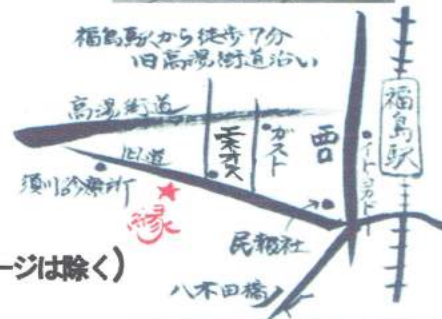 福島駅から徒歩7分
旧高湯街道沿い
高湯街道
旧道
須川診療所
縁
ガスト
西口
イトーヨーカドー
福島駅
民報社
八木田橋
ージは除く)